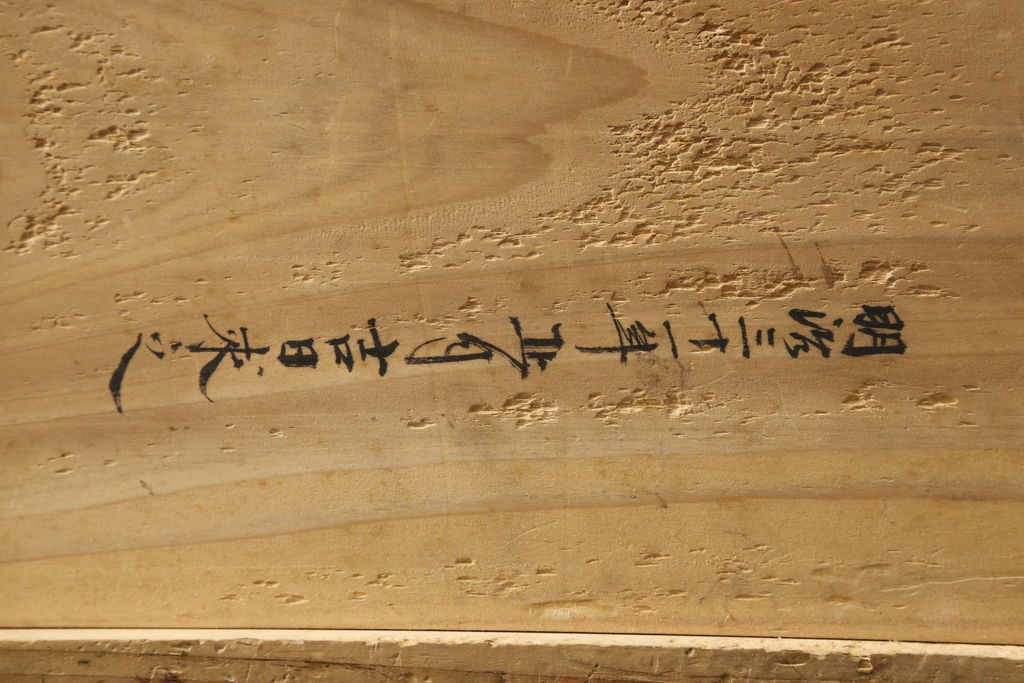 明治三十一年正月吉日求之